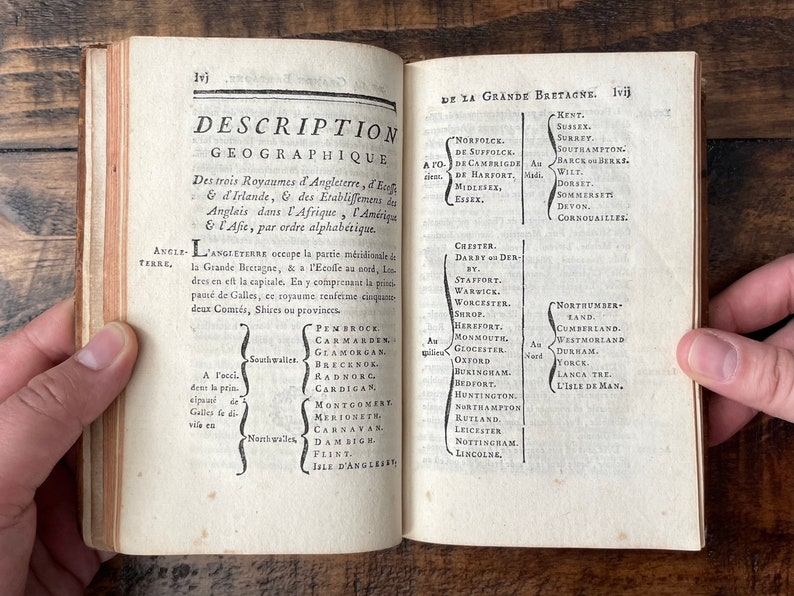 lvj
DESCRIPTION
GEOGRAPHIQUE
Des trois Royaumes d'Angleterre, d'Ecosse
& d'Irlande, & des Etablissemens des
Anglais dans l'Afrique, l'Amérique
& l'Asie, par ordre alphabétique.
ANGLE-
TERRE.
L'ANGLETERRE occupe la partie méridionale de
la Grande Bretagne, & a l'Ecosse au nord, Lon-
dres en est la capitale. En y comprenant la princi-
pauté de Galles, ce royaume renferme cinquante-
deux Comtés, Shires ou provinces.
A l'occi-
dent la prin-
cipauté de
Galles se di-
vise en
Southwalles.
PEMBROCK.
CARMARDEN.
GLAMORGAN.
BRECKNOK.
RADNORC.
CARDIGAN.
Northwalles.
MONTGOMERY.
MERIONETH.
CARNAVAN.
DAMBIGH.
FLINT.
ISLE D'ANGLESEY.
DE LA GRANDE BRETAGNE. lvij
A l'O-
rient.
NORFOLCK.
DE SUFFOLCK.
DE CAMBRIGDE
DE HARFORT.
MIDLESEX,
ESSEX.
Au
Midi.
KENT.
SUSSEX.
SURREY.
SOUTHAMPTON.
BARCK ou BERKS.
WILT.
DORSET.
SOMMERSET.
DEVON.
CORNOUAILLES.
Au
milieu
CHESTER.
DARBY ou DER-
BY.
STAFFORT.
WARWICK.
WORCESTER.
SHROP.
HEREFORT.
MONMOUTH.
GLOCESTER.
OXFORD
BUKINGHAM.
BEDFORT.
HUNTINGTON.
NORTHAMPTON
RUTLAND.
LEICESTER
NOTTINGHAM.
LINCOLNE.
Au
Nord
NORTHUMBER-
LAND.
CUMBERLAND.
WESTMORLAND
DURHAM.
YORCK.
LANCA TRE.
L'ISLE DE MAN.